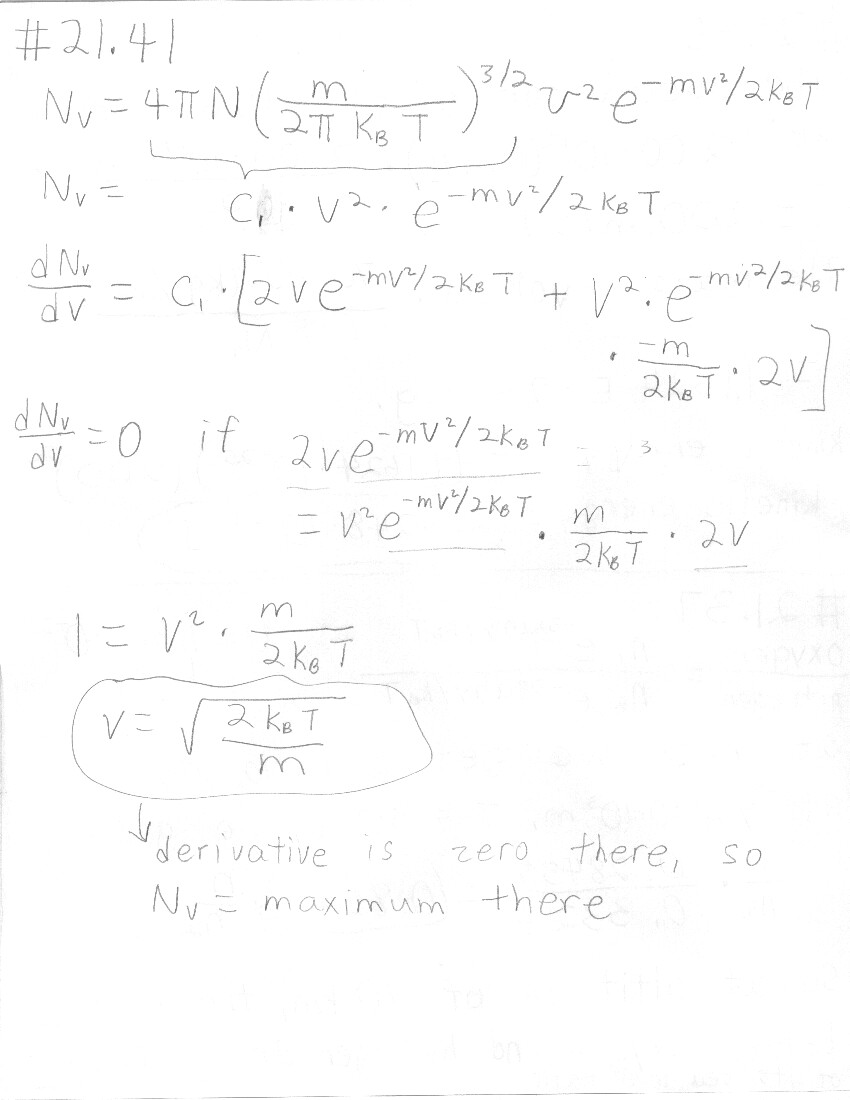 #21.41
N_v = 4πN(m/2πK_BT)^3/2 v² e^-mv²/2K_BT
N_v = C₁ · v² · e^-mv²/2K_BT
dN_v/dv = C₁ · [2ve^-mv²/2K_BT + v² · e^-mv²/2K_BT
· -m/2K_BT · 2v]
dN_v/dv = 0 if 2ve^-mv²/2K_BT
= v²e^-mv²/2K_BT · m/2K_BT · 2v
1 = v² · m/2K_BT
v = √(2K_BT/m)
↓ derivative is zero there, so
N_v = maximum there